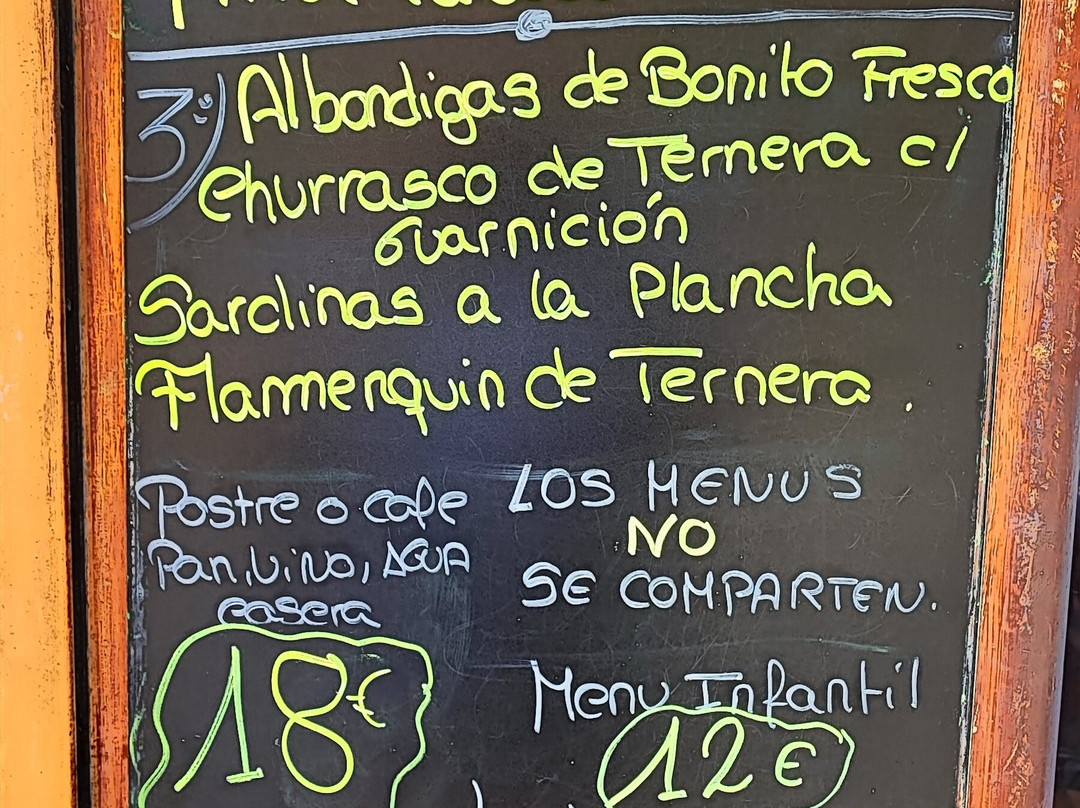 3º) Albondigas de Bonito Fresco
Churrasco de Ternera c/
Guarnición
Sardinas a la Plancha
Flammenquin de Ternera.
Postre o cafe
Pan, Vino, AGUA
casera
18€
LOS MENUS
NO
SE COMPARTEN.
Menu Infantil
12€